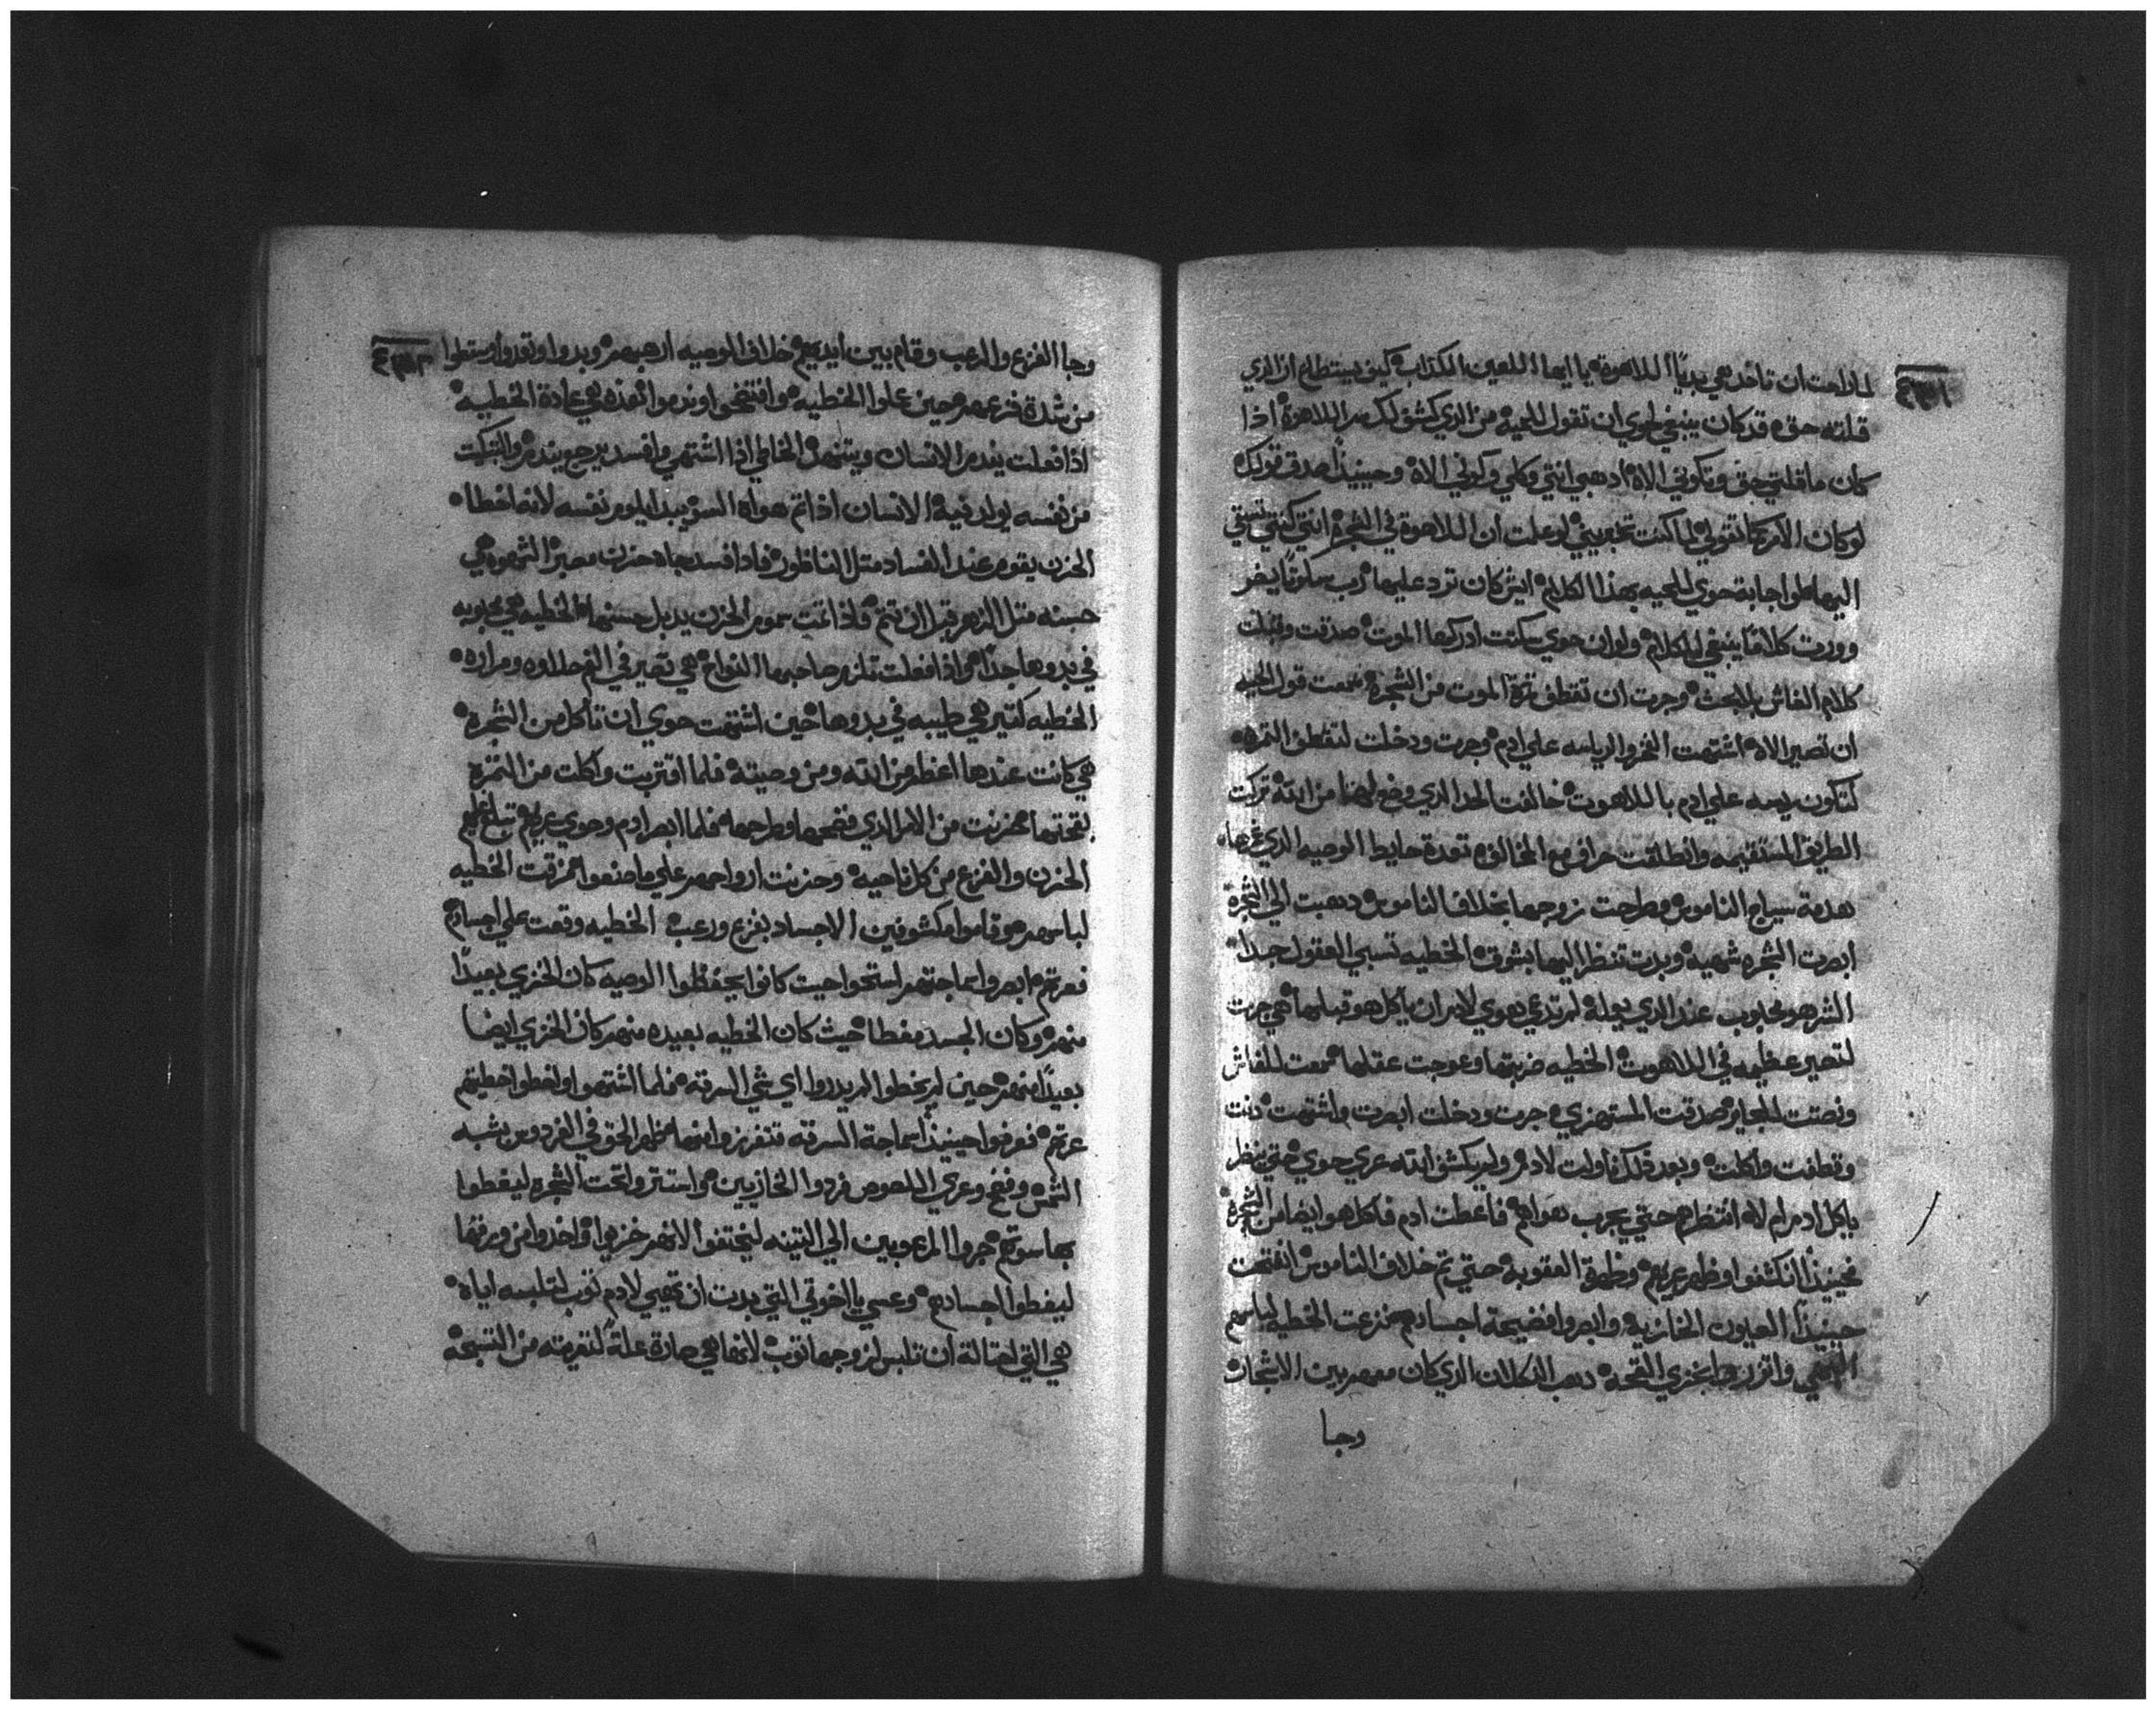 لماذا احت ان تاخد هي بديًا اللاهوة يا ايها اللعين الكذاب كيف يستطاع ان الذي
قلته حق قد كان ينبغي لحوي ان تقول للحيه من الذي كشف لك سر اللاهوة اذا
كان ما قلتي حق وتكوني الاه ادهبي انتي وكلي وكوني الاه وحينيدًا اصدق قولك
لو كان الامر كما تقولي لما كنت تخبريني لو علمت ان اللاهوة في الشجرة انتي كنتي تسبقي
اليها لو اجابة حوي للحيه بهذا الكلام ايش كان ترد عليها رب سكوتًا يضر
وورت كلامًا ينبغي للكلام ولو ان حوي سكتت ادركها الموت صدقت وقبلت
كلام الغاش بلا بحث وجرت ان تقطف ثمرة الموت من الشجرة سمعت قول الحيه
ان تصير الاه اشتهت الفخر والرياسه علي ادم وجرت ودخلت لتقطف الثمره
لتكون ريسه علي ادم باللاهوت خالفت الحد الذي وضع لهما من الله تركت
الطريق المستقيمه وانطلقت خراف من الخالق تعدة حايط الوصيه الذي غرها
هدمة سياج الناموس وطرحت زوجها بخلاف الناموس دهبت الي الشجرة
ابصرت الشجره شهيه وبدت تنظر اليها بشوق الخطيه تسبي العقول جدا
الشر هو محبوب عند الذي يعمله لم تدعي هوي لادم ان ياكل هو قبلها هي جرت
لتصير عظيمه في اللاهوت الخطيه ضربتها وعوجت عقلها سمعت للغاش
ونصتت للمعاير صدقت المستهزي جرت ودخلت ابصرت واشتهت دنت
وقطفت واكلت وبعد ذلك ناولت لادم ولم يكشف الله عري حوي حتي ينظر
ياكل ادم ام لا انتظرهم حتي يجرب هواهم فاعطت ادم فاكل هو ايضا من الشجرة
فحينيذا انكشفوا وظهر عريهم وظهرة العقوبة حتي تم خلاف الناموس انفتحت
حينيذًا العيون الخازية وابصروا فضيحة اجسادهم نزعت الخطيه لباسهم
البهي واتزروا بخزي القبحه دهب التكلان الذي كان معهم بين الاشجار
وجا
وجا الفزع والرعب وقام بين ايديهم خلاف الوصيه ارهبهم وبدوا وتعدوا وسقطوا
من شدة فزعهم حين عملوا الخطيه وافتضحوا وندموا هذه هي عادة الخطيه
اذا فعلت يندم الانسان ويتنهد الخاطي اذا اشتهي وافسد يرجع يندم والتبكيت
من نفسه يولد فيه الانسان اذا تم هواه السو يبدا يلوم نفسه لانه اخطا
الحزن يقوم عند الفساد متل الناظور فاذا افسد جاه حزن مر الشهوه هي
حسنه متل الزهر قبل ان تتم فاذا تمت سموم الحزن يدبل حسنها الخطيه هي محبوبه
في بدوها جدًا واذا فعلت تلزم صاحبها النواح هي تصير في الفم حلاوه ومراره
الخطيه كتير هي طيبه في بدوها حين اشتهت حوي ان تاكل من الشجرة
هي كانت عندها اعظم من الله ومن وصيته فلما اقتربت واكلت من الثمرة
قبحتها حزنت من الامر الذي فضحها وطرحها فلما ابصر ادم وحوي عريهم
الحزن والفزع من كل ناحيه وحزنت ارواحهم علي ما صنعوا مزقت الخطيه
لباسهم وقاموا مكشوفين الاجساد بفزع ورعب الخطيه وقعت علي اجسادهم
فعرتهم ابصروا سماجتهم استحوا حيت كانوا يحفظوا الوصيه كان الخزي بعيدًا
منهم وكان الجسد مغطا حيث كان الخطيه بعيده منهم كان الخزي ايضا
بعيدًا منهم حين لم يخطوا لم يدروا اي شي السرقه فلما اشتهوا واخطوا خطيتهم
عرتهم فعرفوا حينيذا سماجة السرقه تتفرزوا فيهما ظهر الحق في الفردوس بشبه
الشمس وفضح وعري اللصوص فردوا الخازيين واستتروا تحت الشجرة ليغطوا
بها سوتهم جروا المرعوبين الي التينه ليختفوا لانهم خزيوا واخدوا من ورقها
ليغطوا اجسادهم وعسي يا اخوتي التي بدت ان تهيي لادم توب لتلبسه اياه
هي التي احتالة ان تلبس لزوجها توب لانها هي صارة علة لتعريته من التسبحه